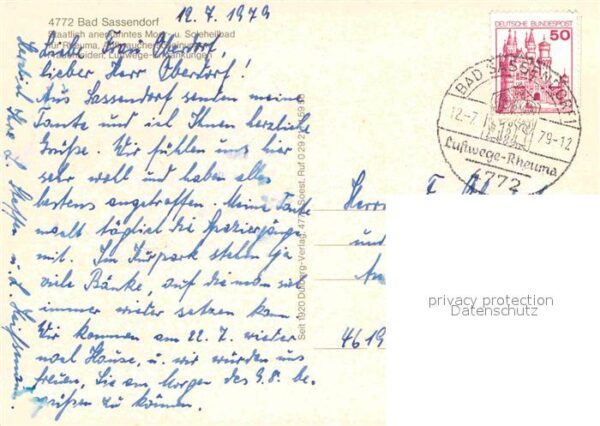 12.7.1979
4772 Bad Sassendorf
Staatlich anerkanntes Moor- u. Soleheilbad
für Rheuma,
Frauenleiden, Luftwege-Erkrankungen
Liebe Frau Oberdorf,
lieber Herr Oberdorf!
Aus Sassendorf senden meine
Tante und ich Ihnen herzliche
Grüße. Wir fühlen uns hier
sehr wohl und haben alles
bestens angetroffen. Meine Tante
macht täglich die Spaziergänge
mit. Im Kurpark stehen ja
viele Bänke, auf die man sich
immer wieder setzen kann.
Wir kommen am 22.7. wieder
nach Hause, u. wir würden uns
freuen, Sie am Morgen des 9.8. be-
grüßen zu können.
Ihre L. Steffen u. L.
Seit 1920 Verlag, 477 Soest, Ruf 0 29 21
DEUTSCHE BUNDESPOST
50
BAD SASSENDORF
12.-7. 79-12
Luftwege-Rheuma
4772
Herrn
und
4619
privacy protection
Datenschutz